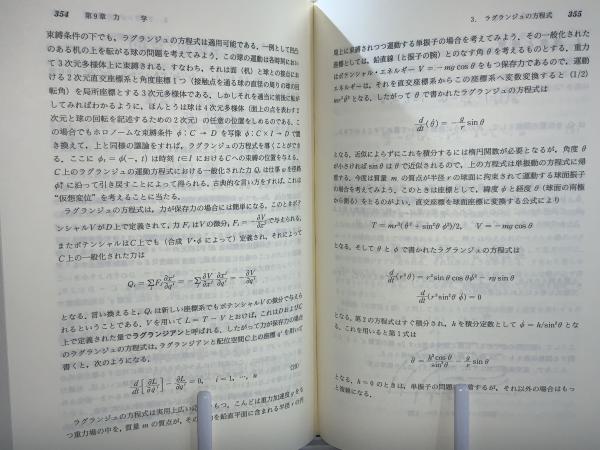 354　第9章 力　学
束縛条件の下でも，ラグランジュの方程式は適用可能である．一例として凹凸
のある机の上を転がる球の問題を考えてみよう．この球の運動は各時刻におい
て3次元多様体上に束縛される．すなわち，それは面（机）と球との接点にお
ける2次元直交座標系と角度座標1つ（接触点を通る球の直径の周りの球の回
転角）を局所座標とする3次元多様体である．しかしそれを適当に前後に転が
してみればわかるように，ほんとうは球は4次元多様体（面上の点を表わす2
次元と球の回転を記述するための2次元）の任意の位置をしめるのである．こ
の場合でもホロノームな束縛条件 φ：C → D を写像 φ：C×I → D で置
き換えて，上と同様の議論をすれば，ラグランジュの方程式を導くことができ
る．ここに φt＝φ(−, t) は時刻 t∈I における C への束縛の位置を与える．
C 上のラグランジュの運動方程式における一般化された力 Qi は仕事 を径路
に沿って引き戻すことによって得られる．古典的な言い方をすれば，これは
“仮想変位”を考えることに当たる．
ラグランジュの方程式は，力が保存力の場合には簡単になる．このときポテ
ンシャルVがD上で定義されて，力 Fi はVの微分，Fi = −∂V/∂xi で与えられる．
またポテンシャルはC上でも（合成 V·φ によって）定義され，それによって
C上の一般化された力は
Qi = ΣFj ∂xj/∂qi = −Σ ∂V/∂xj ∂xj/∂qi = −∂V/∂qi
となる．言い換えると，Qi は新しい座標系でもポテンシャルVの微分で与えら
れるということである．Vを用いて L = T − V とおけば，これはDおよびC
上で定義された量でラグランジアンと呼ばれる．したがって力が保存力の場合
のラグランジュの方程式は，ラグランジアンと配位空間C上の座標 qi を用いて
書くと，次のようになる．
d/dt[∂L/∂q̇i] − ∂L/∂qi = 0,　i = 1, …, n
ラグランジュの方程式は実用上広い もつ．こんどは重力加速度 g をも
つ重力場の中を，質量 m の質点が，その を鉛直平面に含まれる半径 r の円
3. ラグランジュの方程式　355
周上に束縛されつつ運動する単振子の場合を考えてみよう．その一般化された
座標としては，鉛直線と（振子の腕）とのなす角 θ を考えるものとする．重力
はポテンシャル・エネルギー V = −mg cos θ をもつ保存力であるので，運動
エネルギーは，それを直交座標系からこの座標系へ変数変換すると (1/2)
mr²θ̇² となる．したがって θ で書かれたラグランジュの方程式は
d/dt(θ̇) = −g/r sin θ
となる．近似によらずにこれを積分するには楕円関数が必要となるが，角度 θ
が小さければ sin θ は θ で近似されるので，上の方程式は単振動の方程式に帰
着する．今度は質量 m の質点が半径 r の球面に拘束されて運動する球面振子
の場合を考えてみよう．このときは座標として，緯度 φ と経度 θ（球面の南極
から測る）をとるのがよい．直交座標を球面座標に変換する公式により
T = mr²(θ̇² + sin²θ φ̇²)/2,　V = −mg cos θ
となる．そして θ と φ で書かれたラグランジュの方程式は
d/dt(r²θ̇) = r² sin θ cos θφ̇² − rg sin θ
d/dt(r² sin²θ φ̇) = 0
となる．第2の方程式はすぐ積分され，h を積分定数として φ̇ = h/sin²θ とな
る．これを用いると第1式は
θ̈ = h² cos θ/sin³θ − g/r sin θ
となる．h = 0 のときは，単振子の問題 着するが，それ以外の場合はもっ
と複雑になる．